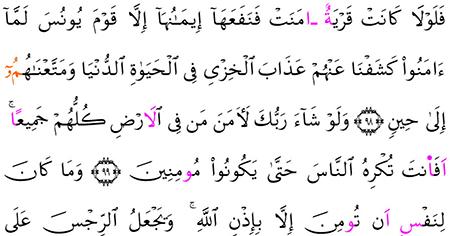 فَلَوْلَا كَانَتْ قَرْيَةٌ ـ\امَنَتْ فَنَفَعَهَآ إِيمَـٰنُهَآ إِلَّا قَوْمَ يُونُسَ لَمَّآ
ءَامَنُوا۟ كَشَفْنَا عَنْهُمْ عَذَابَ ٱلْخِزْىِ فِى ٱلْحَيَوٰةِ ٱلدُّنْيَا وَمَتَّعْنَـٰهُمُۥٓ
إِلَىٰ حِينٍ ۝٩٨ وَلَوْ شَآءَ رَبُّكَ لَأَمَنَ مَن فِى ٱلَارْضِ كُلُّهُمْ جَمِيعًا ۚ
اَفَأَنتَ تُكْرِهُ ٱلنَّاسَ حَتَّىٰ يَكُونُوا۟ مُومِنِينَ ۝٩٩ وَمَا كَانَ
لِنَفْسٍ اَن تُومِنَ إِلَّا بِإِذْنِ ٱللَّهِ ۚ وَيَجْعَلُ ٱلرِّجْسَ عَلَى